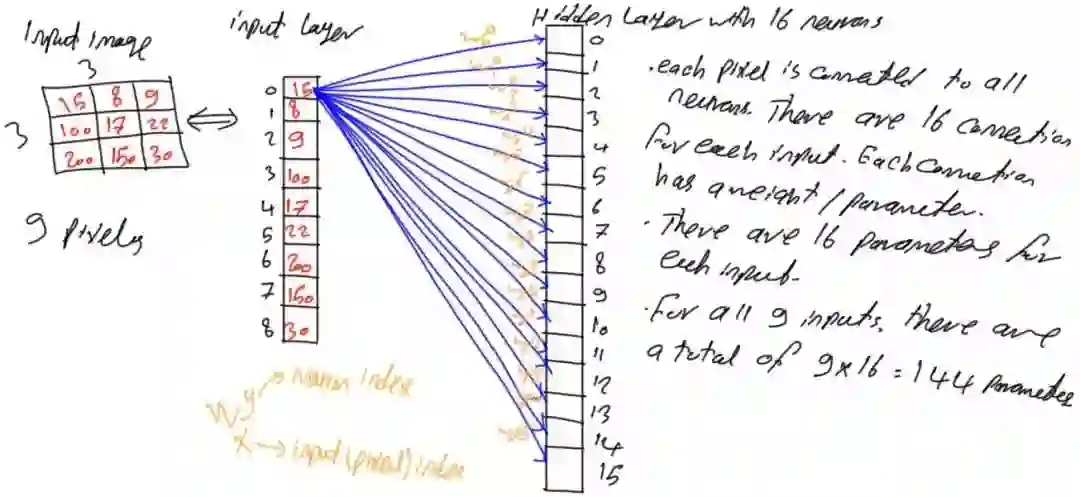 Input image
3
3
15 8 9
100 17 22
200 150 30
9 pixels
input Layer
0 15
1 8
2 9
3 100
4 17
5 22
6 200
7 150
8 30
Hidden Layer with 16 neurons
0
1
2
3
4
5
6
7
8
9
10
11
12
13
14
15
.each pixel is connected to all
neurons. There are 16 connection
for each input. Each connection
has a weight / parameter.
. There are 16 parameters for
each input.
.For all 9 inputs, there are
a total of 9x16 = 144 parameters
W y → neuron index
x → input (pixel) index